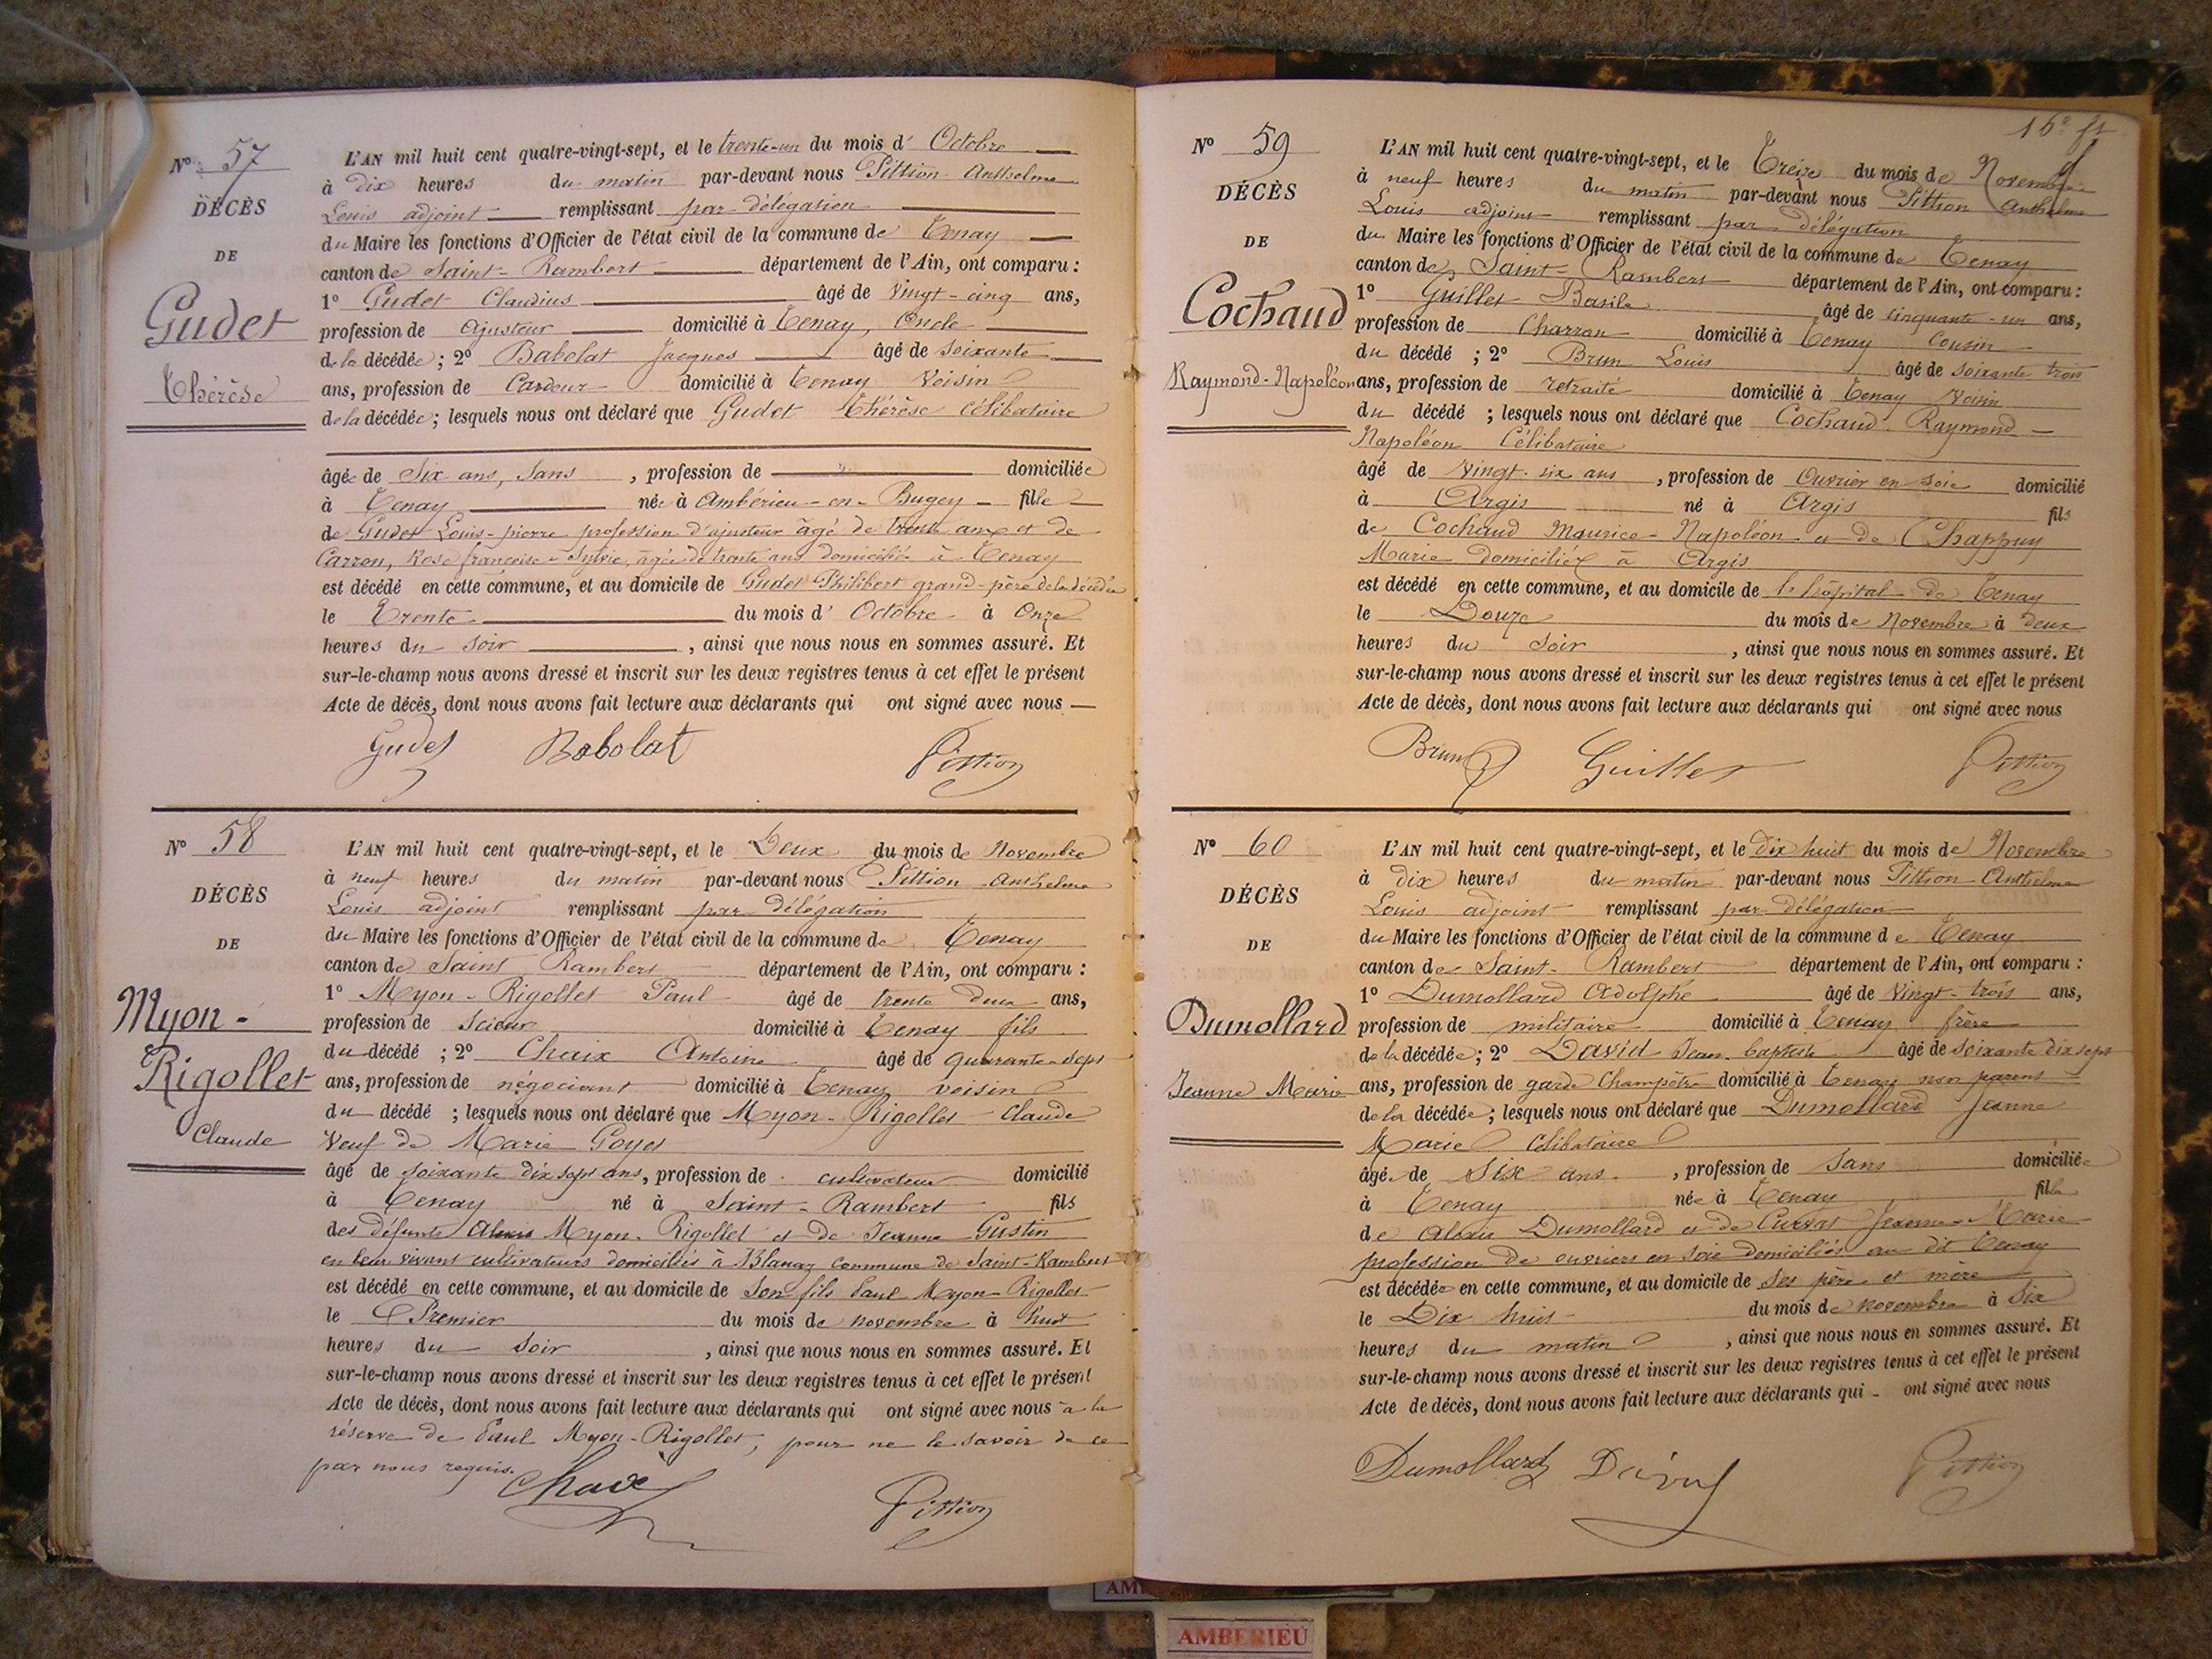 Nº 57
DÉCÈS
DE
Gudet
Thérèse
L'AN mil huit cent quatre-vingt-sept, et le trente-un du mois d' Octobre
à dix heures du matin par-devant nous Pittion Anthelme
Louis adjoint remplissant par délégation
du Maire les fonctions d'Officier de l'état civil de la commune de Tenay
canton de Saint-Rambert département de l'Ain, ont comparu :
1º Gudet Claudius âgé de vingt-cinq ans,
profession de ajusteur domicilié à Tenay, Oncle
de la décédée ; 2º Babolat Jacques âgé de soixante
ans, profession de Cardeur domicilié à Tenay Voisin
de la décédée ; lesquels nous ont déclaré que Gudet Thérèse célibataire
âgée de Six ans, Sans , profession de domiciliée
à Tenay née à Ambérieu-en-Bugey fille
de Gudet Louis-pierre profession d'ajusteur âgé de trente ans et de
Carron, Rose françoise-Sylvie, âgée de trente ans domiciliés à Tenay
est décédé en cette commune, et au domicile de Gudet Philibert grand-père de la décédée
le Trente du mois d' Octobre à Onze
heures du soir , ainsi que nous nous en sommes assuré. Et
sur-le-champ nous avons dressé et inscrit sur les deux registres tenus à cet effet le présent
Acte de décès, dont nous avons fait lecture aux déclarants qui ont signé avec nous
Gudet Babolat Pittion
Nº 58
DÉCÈS
DE
Myon-
Rigollet
Claude
L'AN mil huit cent quatre-vingt-sept, et le Deux du mois de Novembre
à neuf heures du matin par-devant nous Pittion Anthelme
Louis adjoint remplissant par délégation
du Maire les fonctions d'Officier de l'état civil de la commune de Tenay
canton de Saint Rambert département de l'Ain, ont comparu :
1º Myon-Rigollet Paul âgé de trente deux ans,
profession de Scieur domicilié à Tenay fils
du décédé ; 2º Chaix Antoine âgé de quarante-sept
ans, profession de négociant domicilié à Tenay voisin
du décédé ; lesquels nous ont déclaré que Myon-Rigollet Claude
Veuf de Marie Goyet
âgé de soixante dix sept ans, profession de cultivateur domicilié
à Tenay né à Saint-Rambert fils
des défunts Alexis Myon-Rigollet et de Jeanne Gustin
en leur vivant cultivateurs domiciliés à Blanaz commune de Saint-Rambert
est décédé en cette commune, et au domicile de Son fils Paul Myon-Rigollet
le Premier du mois de novembre à huit
heures du Soir , ainsi que nous nous en sommes assuré. Et
sur-le-champ nous avons dressé et inscrit sur les deux registres tenus à cet effet le présent
Acte de décès, dont nous avons fait lecture aux déclarants qui ont signé avec nous à la
réserve de Paul Myon-Rigollet, pour ne le savoir de ce
par nous requis.
Chaix Pittion
16e ft
Nº 59
DÉCÈS
DE
Cochaud
Raymond-Napoléon
L'AN mil huit cent quatre-vingt-sept, et le Treize du mois de Novembre
à neuf heures du matin par-devant nous Pittion Anthelme
Louis adjoint remplissant par délégation
du Maire les fonctions d'Officier de l'état civil de la commune de Tenay
canton de Saint-Rambert département de l'Ain, ont comparu :
1º Guillet Basile âgé de cinquante-un ans,
profession de Charron domicilié à Tenay Cousin
du décédé ; 2º Brun Louis âgé de soixante trois
ans, profession de retraité domicilié à Tenay Voisin
du décédé ; lesquels nous ont déclaré que Cochaud Raymond
Napoléon Célibataire
âgé de vingt-six ans , profession de Ouvrier en soie domicilié
à Argis né à Argis fils
de Cochaud Maurice-Napoléon et de Chappuy
Marie domiciliés à Argis
est décédé en cette commune, et au domicile de l'hôpital de Tenay
le Douze du mois de Novembre à deux
heures du Soir , ainsi que nous nous en sommes assuré. Et
sur-le-champ nous avons dressé et inscrit sur les deux registres tenus à cet effet le présent
Acte de décès, dont nous avons fait lecture aux déclarants qui ont signé avec nous
Brun Guillet Pittion
Nº 60
DÉCÈS
DE
Dumollard
Jeanne Marie
L'AN mil huit cent quatre-vingt-sept, et le dix huit du mois de Novembre
à dix heures du matin par-devant nous Pittion-Anthelme
Louis adjoint remplissant par délégation
du Maire les fonctions d'Officier de l'état civil de la commune de Tenay
canton de Saint-Rambert département de l'Ain, ont comparu :
1º Dumollard Adolphe âgé de vingt-trois ans,
profession de militaire domicilié à Tenay frère
de la décédée ; 2º David Jean-baptiste âgé de soixante dix sept
ans, profession de garde Champêtre domicilié à Tenay non parent
de la décédée ; lesquels nous ont déclaré que Dumollard Jeanne
Marie Célibataire
âgée de Six ans , profession de Sans domiciliée
à Tenay née à Tenay fille
de Alexis Dumollard et de Curvat Jeanne-Marie
profession de ouvriers en soie domiciliés au dit Tenay
est décédée en cette commune, et au domicile de ses père et mère
le Dix huit du mois de novembre à Six
heures du matin , ainsi que nous nous en sommes assuré. Et
sur-le-champ nous avons dressé et inscrit sur les deux registres tenus à cet effet le présent
Acte de décès, dont nous avons fait lecture aux déclarants qui ont signé avec nous
Dumollard David Pittion
AMBERIEU